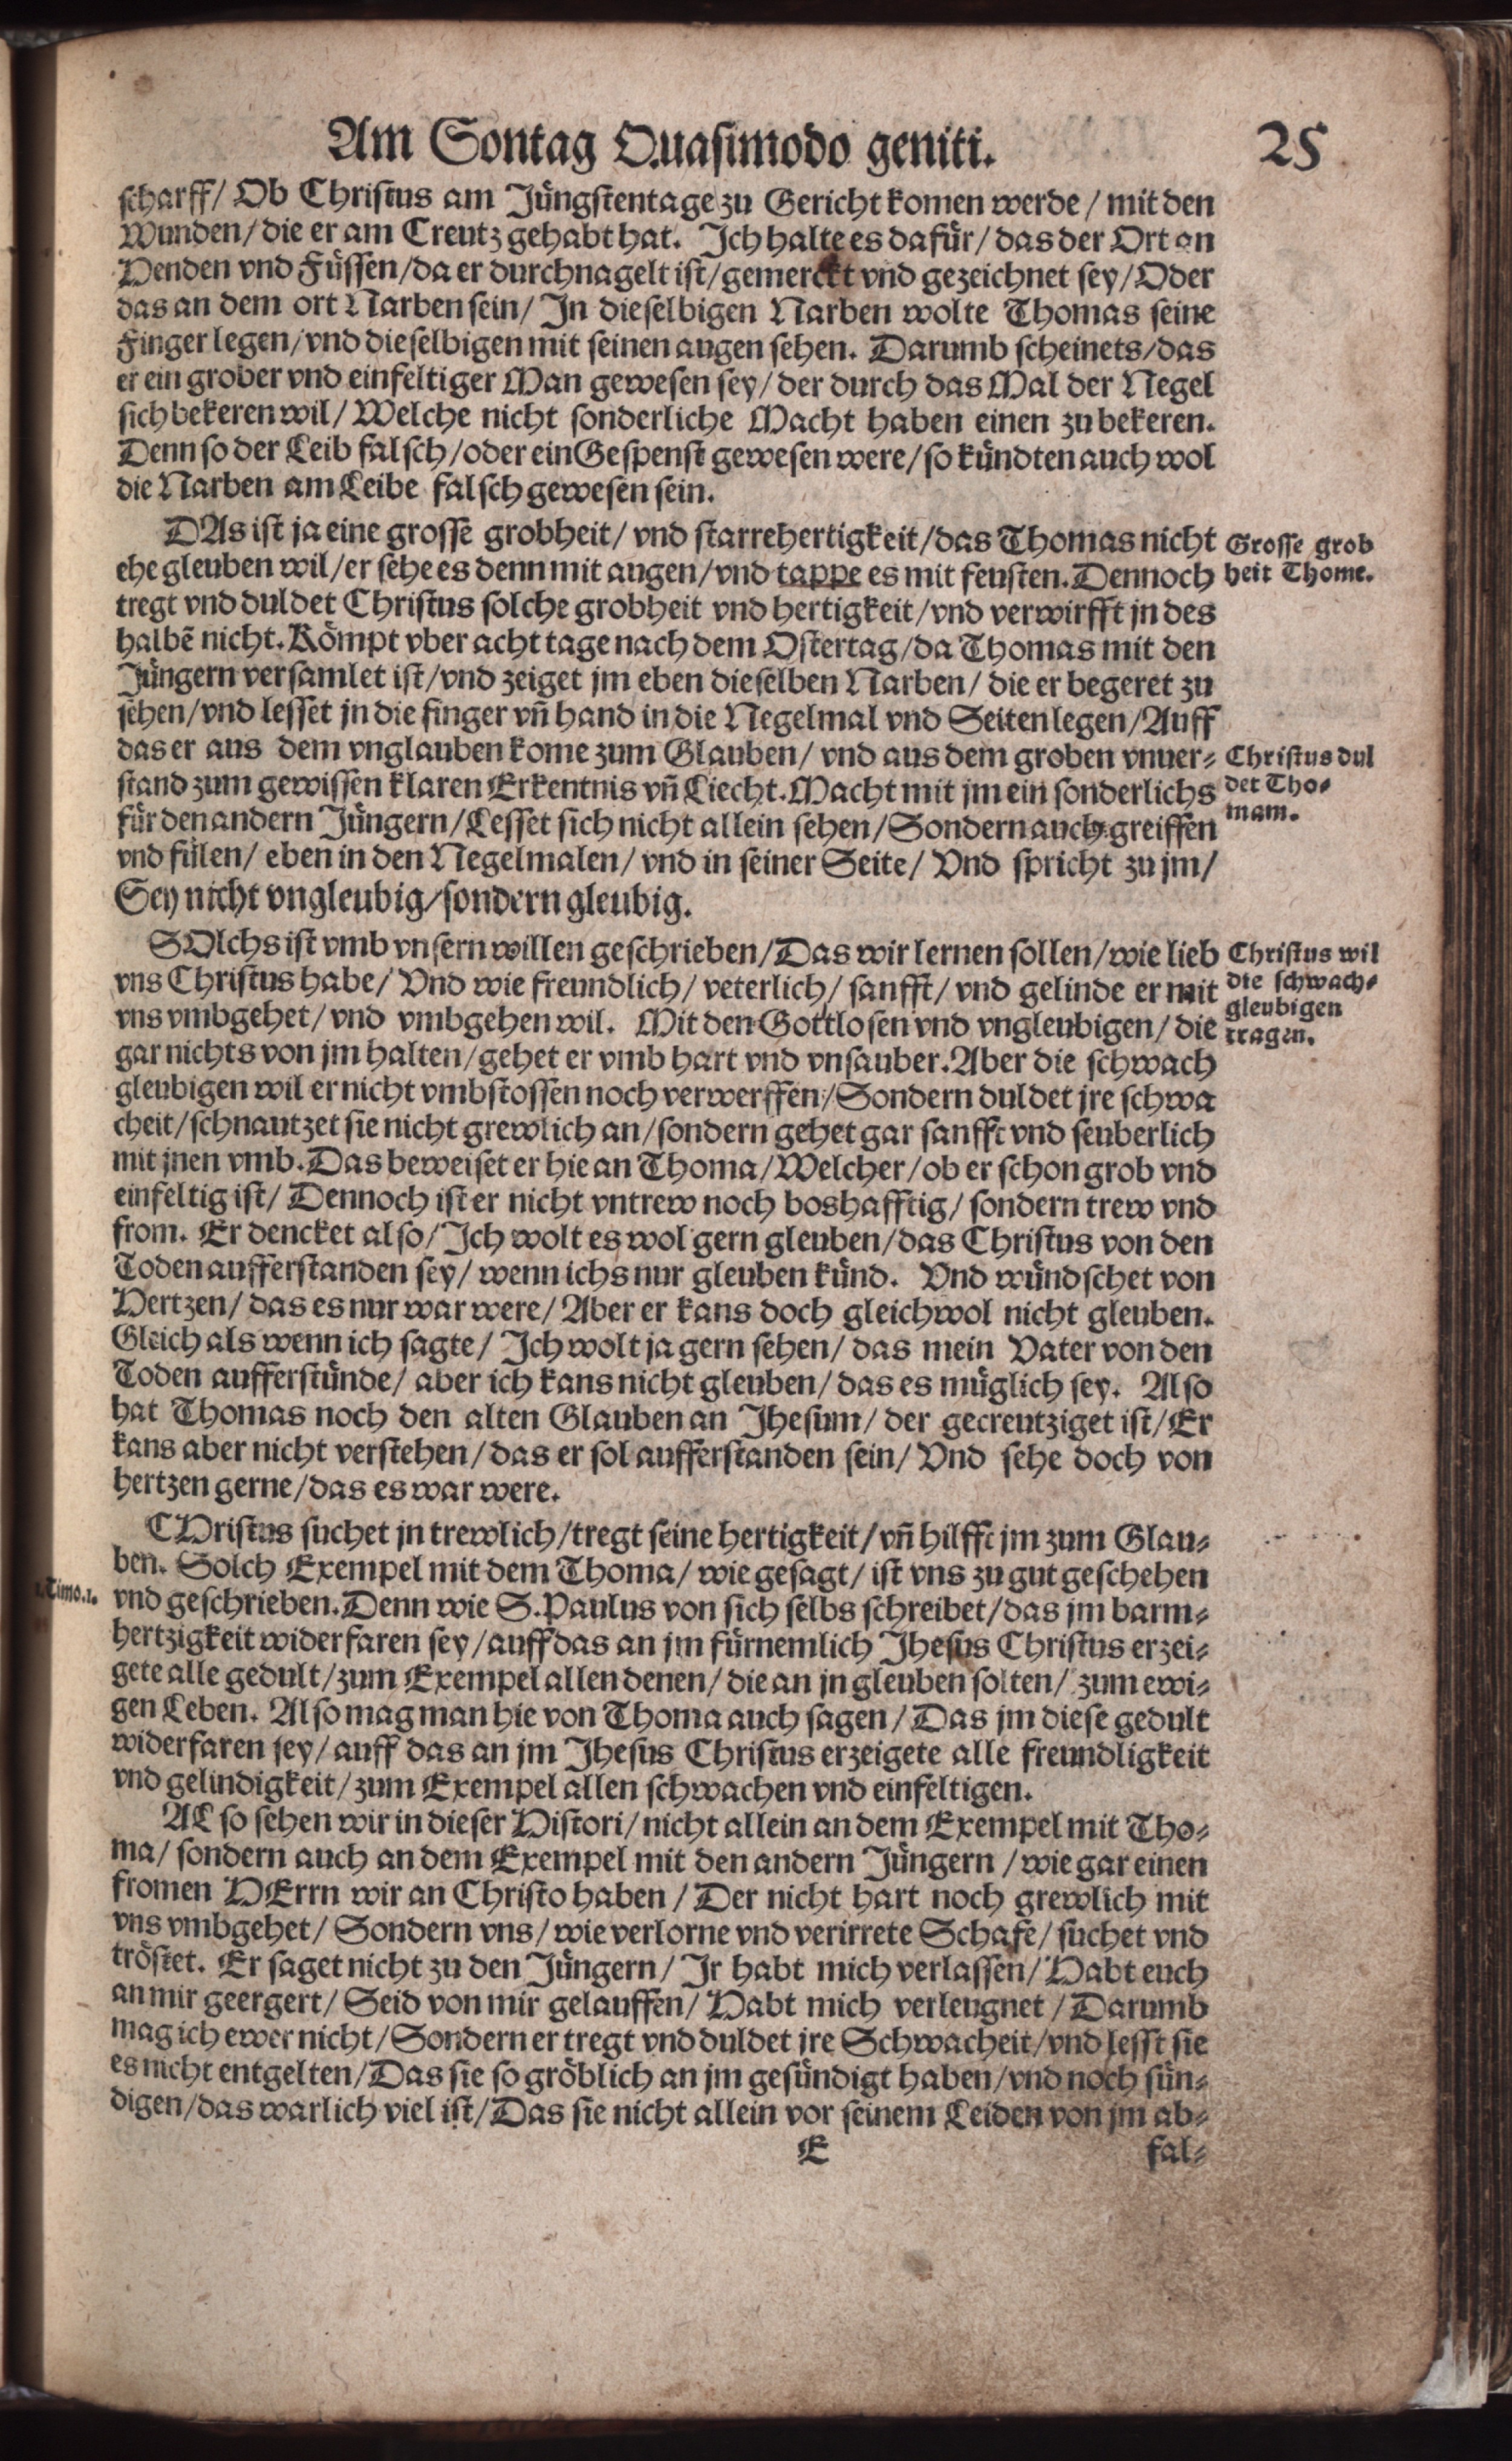 Am Sontag Quasimodo geniti. 25
scharff/ Ob Christus am Jüngstentage zu Gericht komen werde/ mit den
Wunden/ die er am Creutz gehabt hat. Ich halte es dafür/ das der Ort an
Henden vnd Füssen/ da er durchnagelt ist/ gemerckt vnd gezeichnet sey/ Oder
das an dem ort Narben sein/ In dieselbigen Narben wolte Thomas seine
Finger legen/ vnd dieselbigen mit seinen augen sehen. Darumb scheinets/ das
er ein grober vnd einfeltiger Man gewesen sey/ der durch das Mal der Negel
sich bekeren wil/ Welche nicht sonderliche Macht haben einen zu bekeren.
Denn so der Leib falsch/ oder ein Gespenst gewesen were/ so kündten auch wol
die Narben am Leibe falsch gewesen sein.
DAs ist ja eine grosse grobheit/ vnd starrehertigkeit/ das Thomas nicht
ehe gleuben wil/ er sehe es denn mit augen/ vnd tappe es mit feusten. Dennoch
Grosse grob
heit Thome.
tregt vnd duldet Christus solche grobheit vnd hertigkeit/ vnd verwirfft jn des
halbē nicht. Kömpt vber acht tage nach dem Ostertag/ da Thomas mit den
Jüngern versamlet ist/ vnd zeiget jm eben dieselben Narben/ die er begeret zu
sehen/ vnd lesset jn die finger vn̄ hand in die Negelmal vnd Seiten legen/ Auff
das er aus dem vnglauben kome zum Glauben/ vnd aus dem groben vnuer-
stand zum gewissen klaren Erkentnis vn̄ Liecht. Macht mit jm ein sonderlichs
für den andern Jüngern/ Lesset sich nicht allein sehen/ Sondern auch greiffen
Christus dul
det Tho-
mam.
vnd fülen/ eben in den Negelmalen/ vnd in seiner Seite/ Vnd spricht zu jm/
Sey nicht vngleubig/ sondern gleubig.
SOlchs ist vmb vnsern willen geschrieben/ Das wir lernen sollen/ wie lieb
vns Christus habe/ Vnd wie freundlich/ veterlich/ sanfft/ vnd gelinde er mit
vns vmbgehet/ vnd vmbgehen wil. Mit den Gottlosen vnd vngleubigen/ die
Christus wil
die schwach-
gleubigen
tragen.
gar nichts von jm halten/ gehet er vmb hart vnd vnsauber. Aber die schwach
gleubigen wil er nicht vmbstossen noch verwerffen/ Sondern duldet jre schwa
cheit/ schnautzet sie nicht grewlich an/ sondern gehet gar sanfft vnd seuberlich
mit jnen vmb. Das beweiset er hie an Thoma/ Welcher/ ob er schon grob vnd
einfeltig ist/ Dennoch ist er nicht vntrew noch boshafftig/ sondern trew vnd
from. Er dencket also/ Ich wolt es wol gern gleuben/ das Christus von den
Toden aufferstanden sey/ wenn ichs nur gleuben künd. Vnd wündschet von
Hertzen/ das es nur war were/ Aber er kans doch gleichwol nicht gleuben.
Gleich als wenn ich sagte/ Ich wolt ja gern sehen/ das mein Vater von den
Toden aufferstünde/ aber ich kans nicht gleuben/ das es müglich sey. Also
hat Thomas noch den alten Glauben an Jhesum/ der gecreutziget ist/ Er
kans aber nicht verstehen/ das er sol aufferstanden sein/ Vnd sehe doch von
hertzen gerne/ das es war were.
CHristus suchet jn trewlich/ tregt seine hertigkeit/ vn̄ hilfft jm zum Glau-
ben. Solch Exempel mit dem Thoma/ wie gesagt/ ist vns zu gut geschehen
1. Timo. 1.
vnd geschrieben. Denn wie S. Paulus von sich selbs schreibet/ das jm barm-
hertzigkeit widerfaren sey/ auff das an jm fürnemlich Jhesus Christus erzei-
gete alle gedult/ zum Exempel allen denen/ die an jn gleuben solten/ zum ewi-
gen Leben. Also mag man hie von Thoma auch sagen/ Das jm diese gedult
widerfaren sey/ auff das an jm Jhesus Christus erzeigete alle freundligkeit
vnd gelindigkeit/ zum Exempel allen schwachen vnd einfeltigen.
ALso sehen wir in dieser Histori/ nicht allein an dem Exempel mit Tho-
ma/ sondern auch an dem Exempel mit den andern Jüngern/ wie gar einen
fromen HErrn wir an Christo haben/ Der nicht hart noch grewlich mit
vns vmbgehet/ Sondern vns/ wie verlorne vnd verirrete Schafe/ suchet vnd
tröstet. Er saget nicht zu den Jüngern/ Ir habt mich verlassen/ Habt euch
an mir geergert/ Seid von mir gelauffen/ Habt mich verleugnet/ Darumb
mag ich ewer nicht/ Sondern er tregt vnd duldet jre Schwacheit/ vnd lesst sie
es nicht entgelten/ Das sie so gröblich an jm gesündigt haben/ vnd noch sün-
digen/ das warlich viel ist/ Das sie nicht allein vor seinem Leiden von jm ab-
E fal-